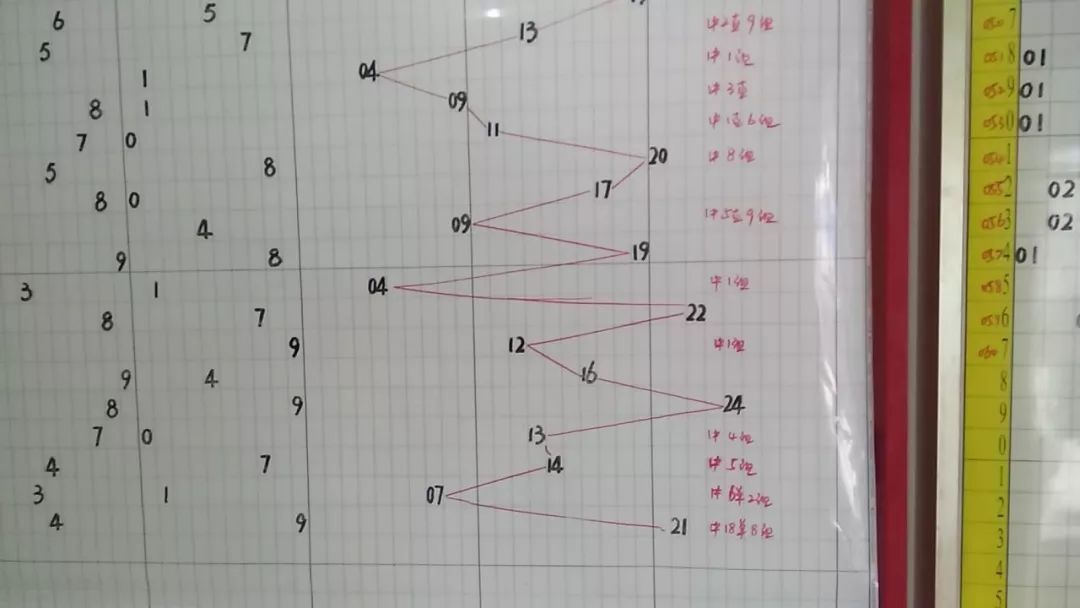 6 5 13 中2直9组
5 7 04 中1组
1 09 中3直
8 1 11 中1直6组
7 0 20 中8组
5 8 17
8 0 09 中5直9组
4 19
9 8 04 中1组
3 1 22
8 7 12 中1组
9 16
9 4 24
8 9 13 中4组
7 0 14 中5组
4 7 07 中6单2组
3 1 21 中18单8组
4 9
7
8 01
9 01
0 01
1
2 02
3 02
4 01
5
6
7
8
9
0
1
2
3
4
5